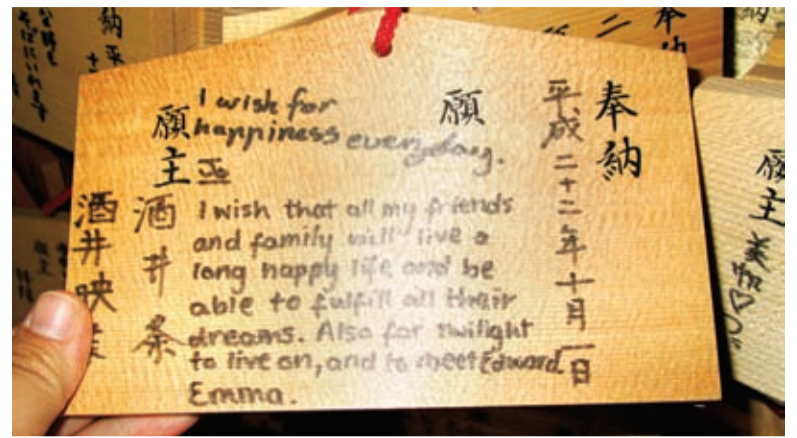 奉納
平成二十二年十月一日
願
I wish for
happiness everyday.
Jo
I wish that all my friends
and family will live a
long happy life and be
able to fulfill all their
dreams. Also for twilight
to live on, and to meet Edward.
Emma.
願主
酒井条
酒井映
願主